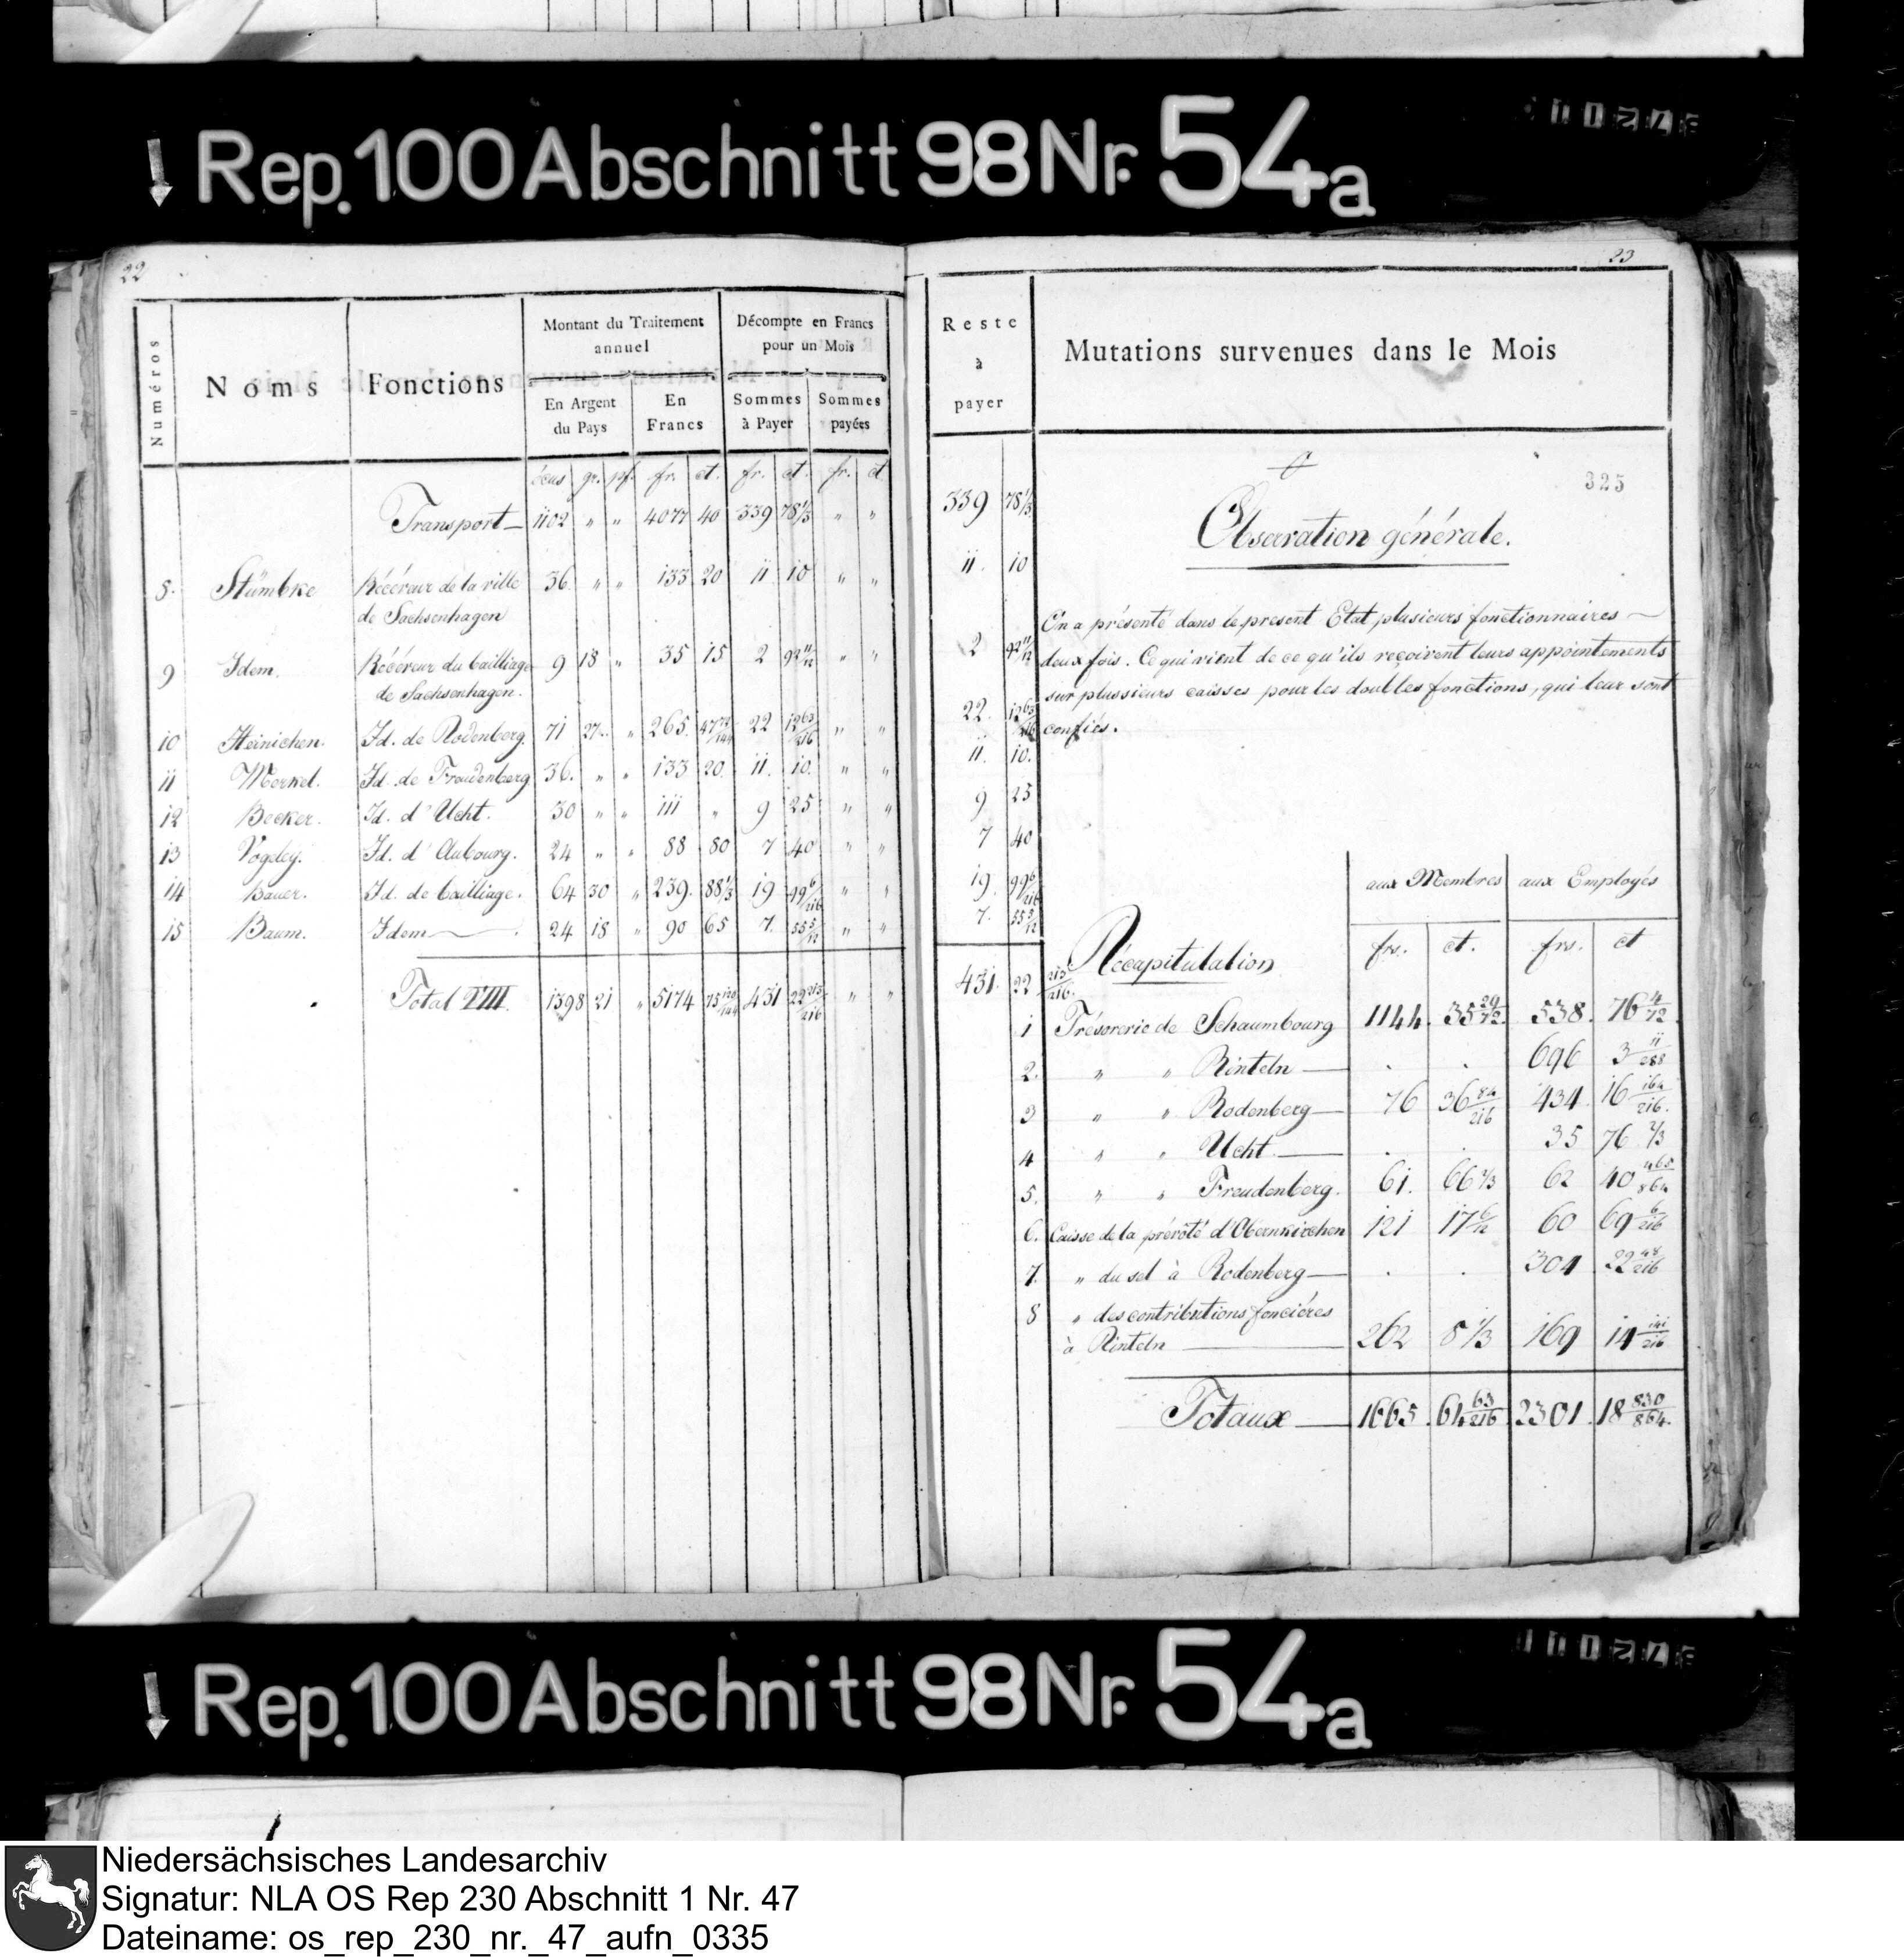 ↓ Rep. 100 Abschnitt 98 Nr. 54a
22
Numéros
Noms
Fonctions
Montant du Traitement annuel
Décompte en Francs pour un Mois
En Argent du Pays
En Francs
Sommes à Payer
Sommes payées
écus gr. pf. fr. ct. fr. ct. fr. ct
Transport 1102 " " 4077 40 339 78 1/3 " "
8. Stümbke Récéveur de la ville 36 " " 133 20 11 10 " "
de Sachsenhagen
9 Idem. Récéveur du bailliage 9 18 " 35 15 2 92 11/12 " "
de Sachsenhagen.
10 Heinichen. Id. de Rodenberg. 71 27 " 265. 47 72/144 22 12 63/216 " "
11 Merkel. Id. de Freudenberg 36. " " 133 20. 11. 10. " "
12 Becker. Id. d'Ucht. 30 " " 111 " 9 25 " "
13 Vogdey. Id. d'Aubourg. 24 " " 88 80 7 40 " "
14 Bauer. Id. de bailliage. 64 30 " 239. 88 1/3 19 99 6/216 " "
15 Baum. Idem 24 18 " 90 65 7. 55 5/12 " "
Total VIII. 1398 21 " 5174 75 120/144 431 22 213/216 " "
23
Reste à payer
Mutations survenues dans le Mois
325
339 78 1/3
11. 10
2 92 11/12
22. 12 63/216
11. 10.
9 25
7 40
19. 99 6/216
7. 55 5/12
431. 22 213/216.
Observation générale.
On a présenté dans le present Etat plusieurs fonctionnaires
deux fois. Ce qui vient de ce qu'ils reçoivent leurs appointements
sur plussieurs caisses pour les doubles fonctions, qui leur sont
confiés.
aux Membres aux Employés
Récapitulation frs. ct. frs. ct
1 Trésorerie de Schaumbourg 1144. 35 29/72. 538. 76 4/72
2. " " Rinteln . . 696 3 11/288
3 " " Rodenberg 76 36 84/216 434 16 164/216.
4 " " Ucht. . . 35 76 2/3
5. " " Freudenberg. 61. 66 2/3 62 40 465/864
6. Caisse de la prévôté d'Obernkirchen 121 17 6/12 60 69 6/216
7. " du sel à Rodenberg . . 304 22 48/216
8 " des contributions foncières
à Rinteln 262 8 1/3 169 14 141/216
Totaux 1665. 64 63/216 2301. 18 830/864.
↓ Rep. 100 Abschnitt 98 Nr. 54a
Niedersächsisches Landesarchiv
Signatur: NLA OS Rep 230 Abschnitt 1 Nr. 47
Dateiname: os_rep_230_nr._47_aufn_0335